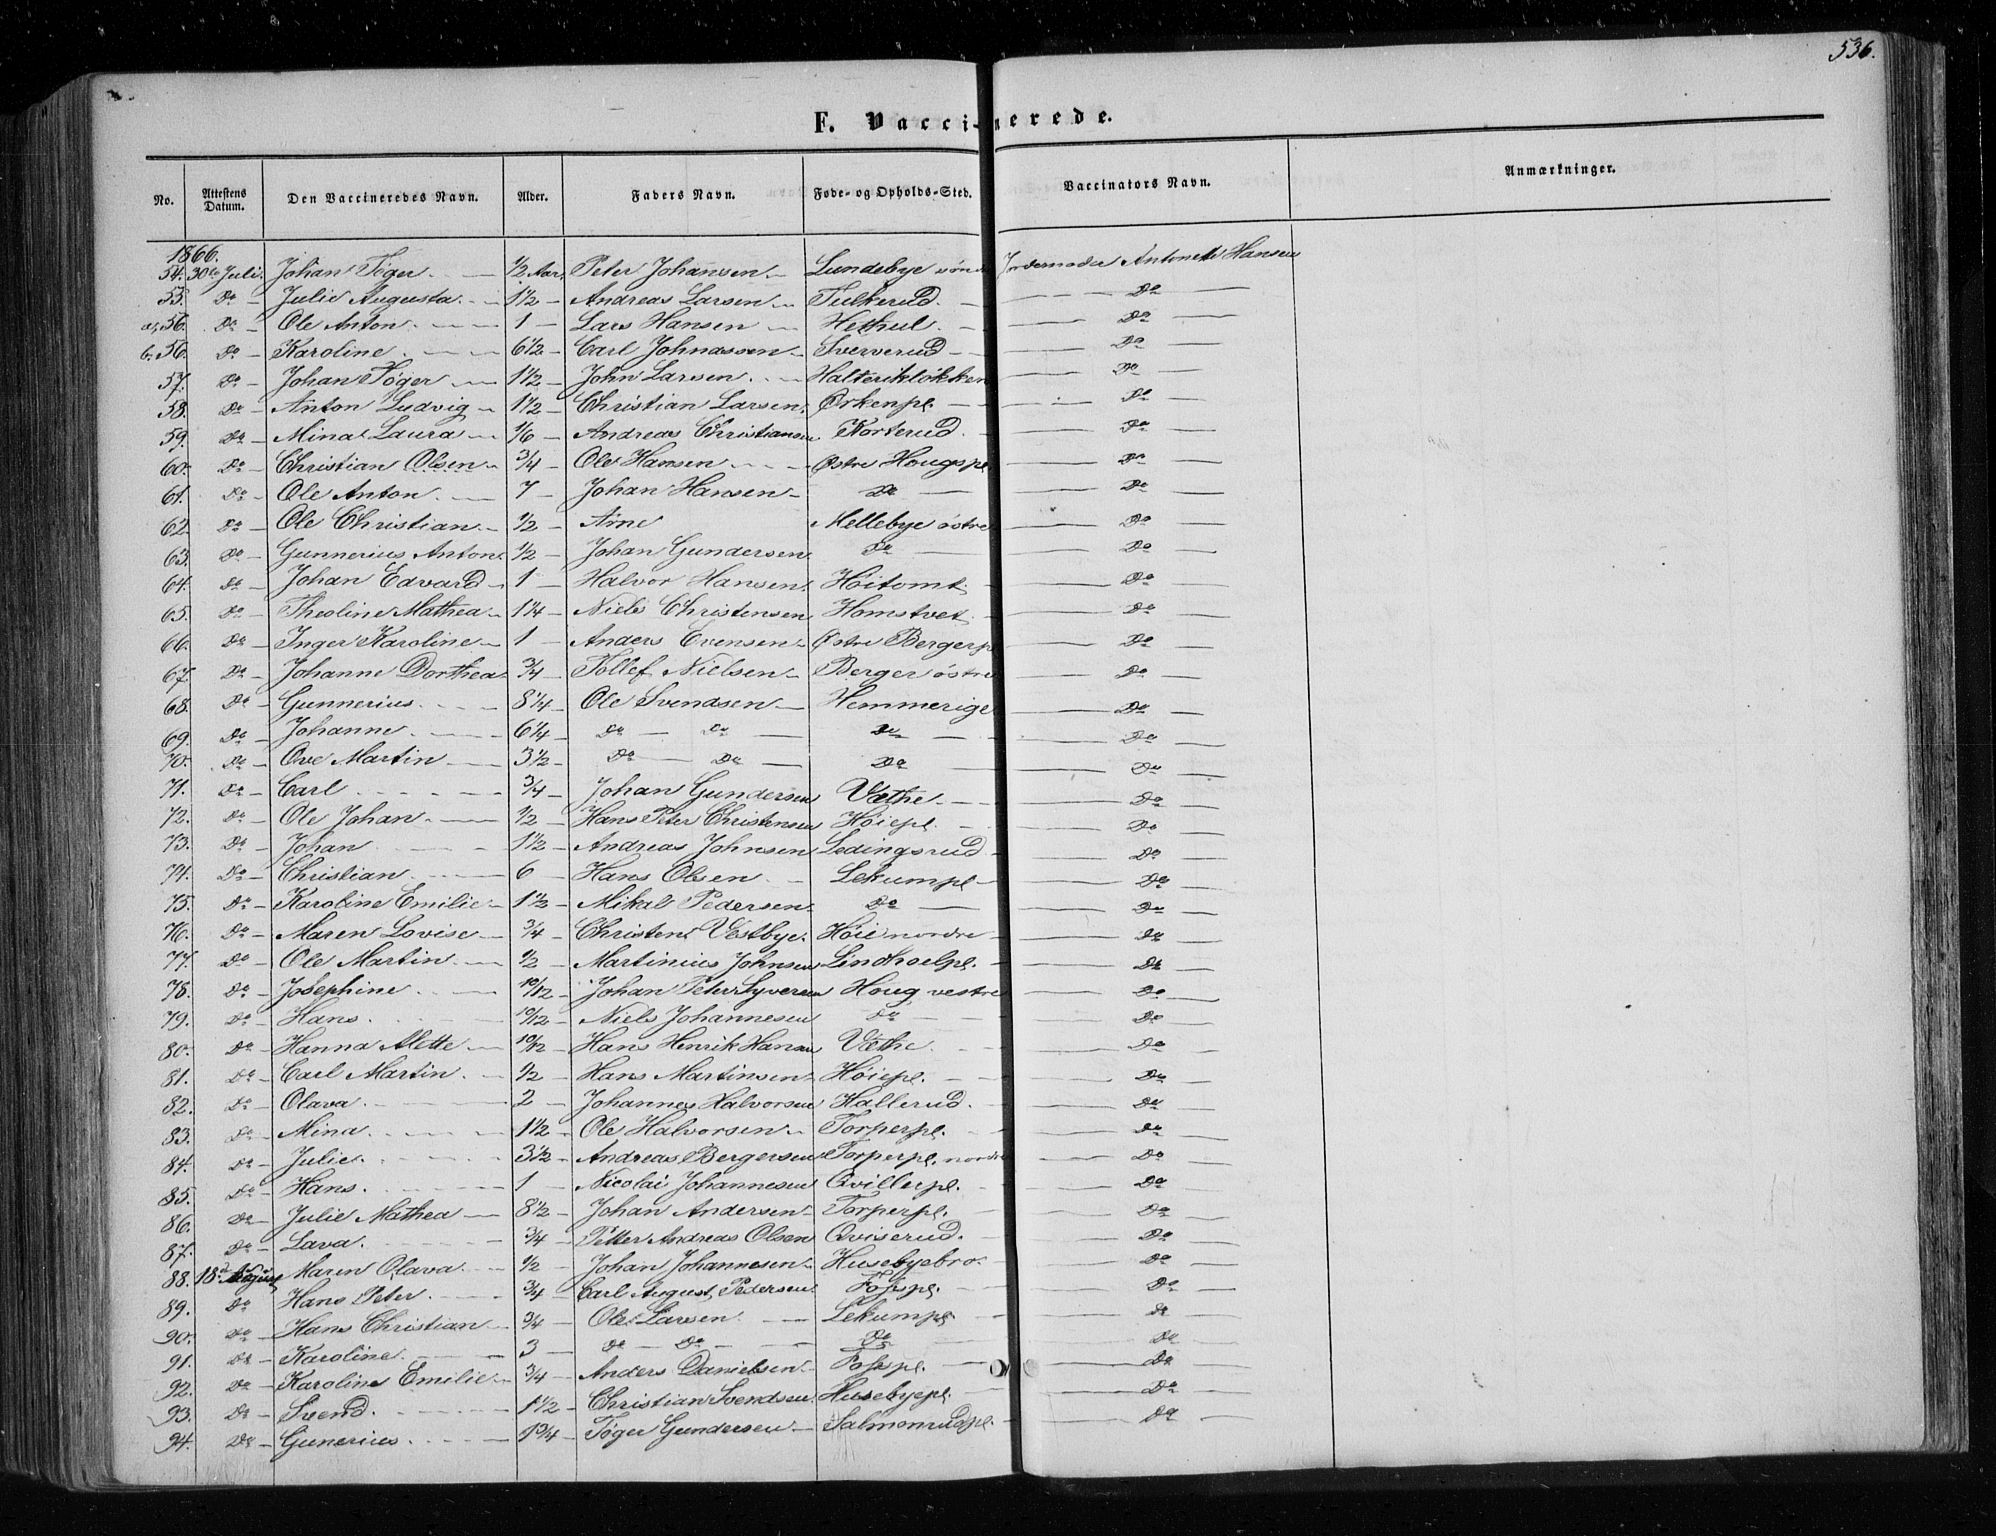 536.
F. Vaccinerede.
No. Attestens Datum. Den Vaccineredes Navn. Alder. Faders Navn. Føde- og Opholds-Sted. Vaccinators Navn. Anmærkninger.
1866.
54. 30te Juli. Johan Tøger. ½ Aar Peter Johansen Lundebye Jordemoder Antonette Hansen
55. Do Julie Augusta 1½ Andreas Larsen Tulkerud. Do
a, 56. Do Ole Anton. 1 Lars Hansen Do
b. 56. Do Karoline. 6½ Carl Johnassen Sververud Do
57. Do Johan Tøger 1½ John Larsen. Do
58. Do Anton Ludvig 1½ Christian Larsen Ørkenpl. Do
59. Do Mina Laura 1/6 Andreas Christiansen Korterud. Do
60. Do Christian Olsen ¾ Ole Hansen Østre Hougspl Do
61. Do Ole Anton 7 Johan Hansen Do Do
62. Do Ole Christian. ½ Arne Mellebye østre Do
63. Do Gunnerius Anton. ½ Johan Gundersen Do Do
64. Do Johan Edvard 1 Halvor Hansen Høitomt Do
65. Do Theoline Mathea 1¼ Niels Christensen Homstvet Do
66. Do Inger Karoline 1 Anders Evensen Østre Bergerp Do
67. Do Johanne Dorthea ¾ Tollef Nielsen Berger østre Do
68. Do Gunnerius. 8¼ Ole Svendsen Hemmerige Do
69. Do Johanne 6¼ Do Do Do Do
70. Do Ove Martin 3½ Do Do Do Do
71. Do Carl ¾ Johan Gundersen Væthe. Do
72. Do Ole Johan ½ Hans Peter Christensen Høiepl. Do
73. Do Johan 1½ Andreas Johnsen Ledingsrud Do
74. Do Christian 6 Hans Olsen Lekumpl Do
75. Do Karoline Emilie 1½ Mikal Pedersen Do Do
76. Do Maren Lovise ¾ Christen Vestbye. Høie nordre Do
77. Do Ole Martin ½ Martinius Johnsen Lindhoelpl. Do
78. Do Josephine 10/12 Johan Peter Syversen Houg vestre Do
79. Do Hans 10/12 Niels Johannesen Do Do
80. Do Hanna Alette 10/12 Hans Henrik Hansen Væthe. Do
81. Do Carl Martin. ½ Hans Martinsen Høiepl. Do
82. Do Olava 2 Johannes Halvorsen Hallerud. Do
83. Do Mina 1½ Ole Halvorsen Torperpl. Do
84. Do Julie. 3½ Andreas Bergersen Torperpl. nordre Do
85. Do Hans. 1 Nicolai Johannesen Qvillerpl. Do
86. Do Julie Mathea 8½ Johan Andersen Torperpl. Do
87. Do Lava. ¾ Petter Andreas Olsen Qviserud. Do
88. 18de August Maren Olava ½ Johan Johannesen Husebyebro Do
89. Do Hans Peter ¾ Carl August Pedersen Fosspl. Do
90. Do Hans Christian ¾ Ole Larsen Lekumpl Do
91. Do Karoline 3 Do Do Do Do
92. Do Karoline Emilie ¾ Anders Danielsen Fosspl. Do
93. Do Svend. 1½ Christian Svendsen Husebyepl. Do
94. Do Gunerius 1¾ Tøger Gundersen Salmonrudspl. Do